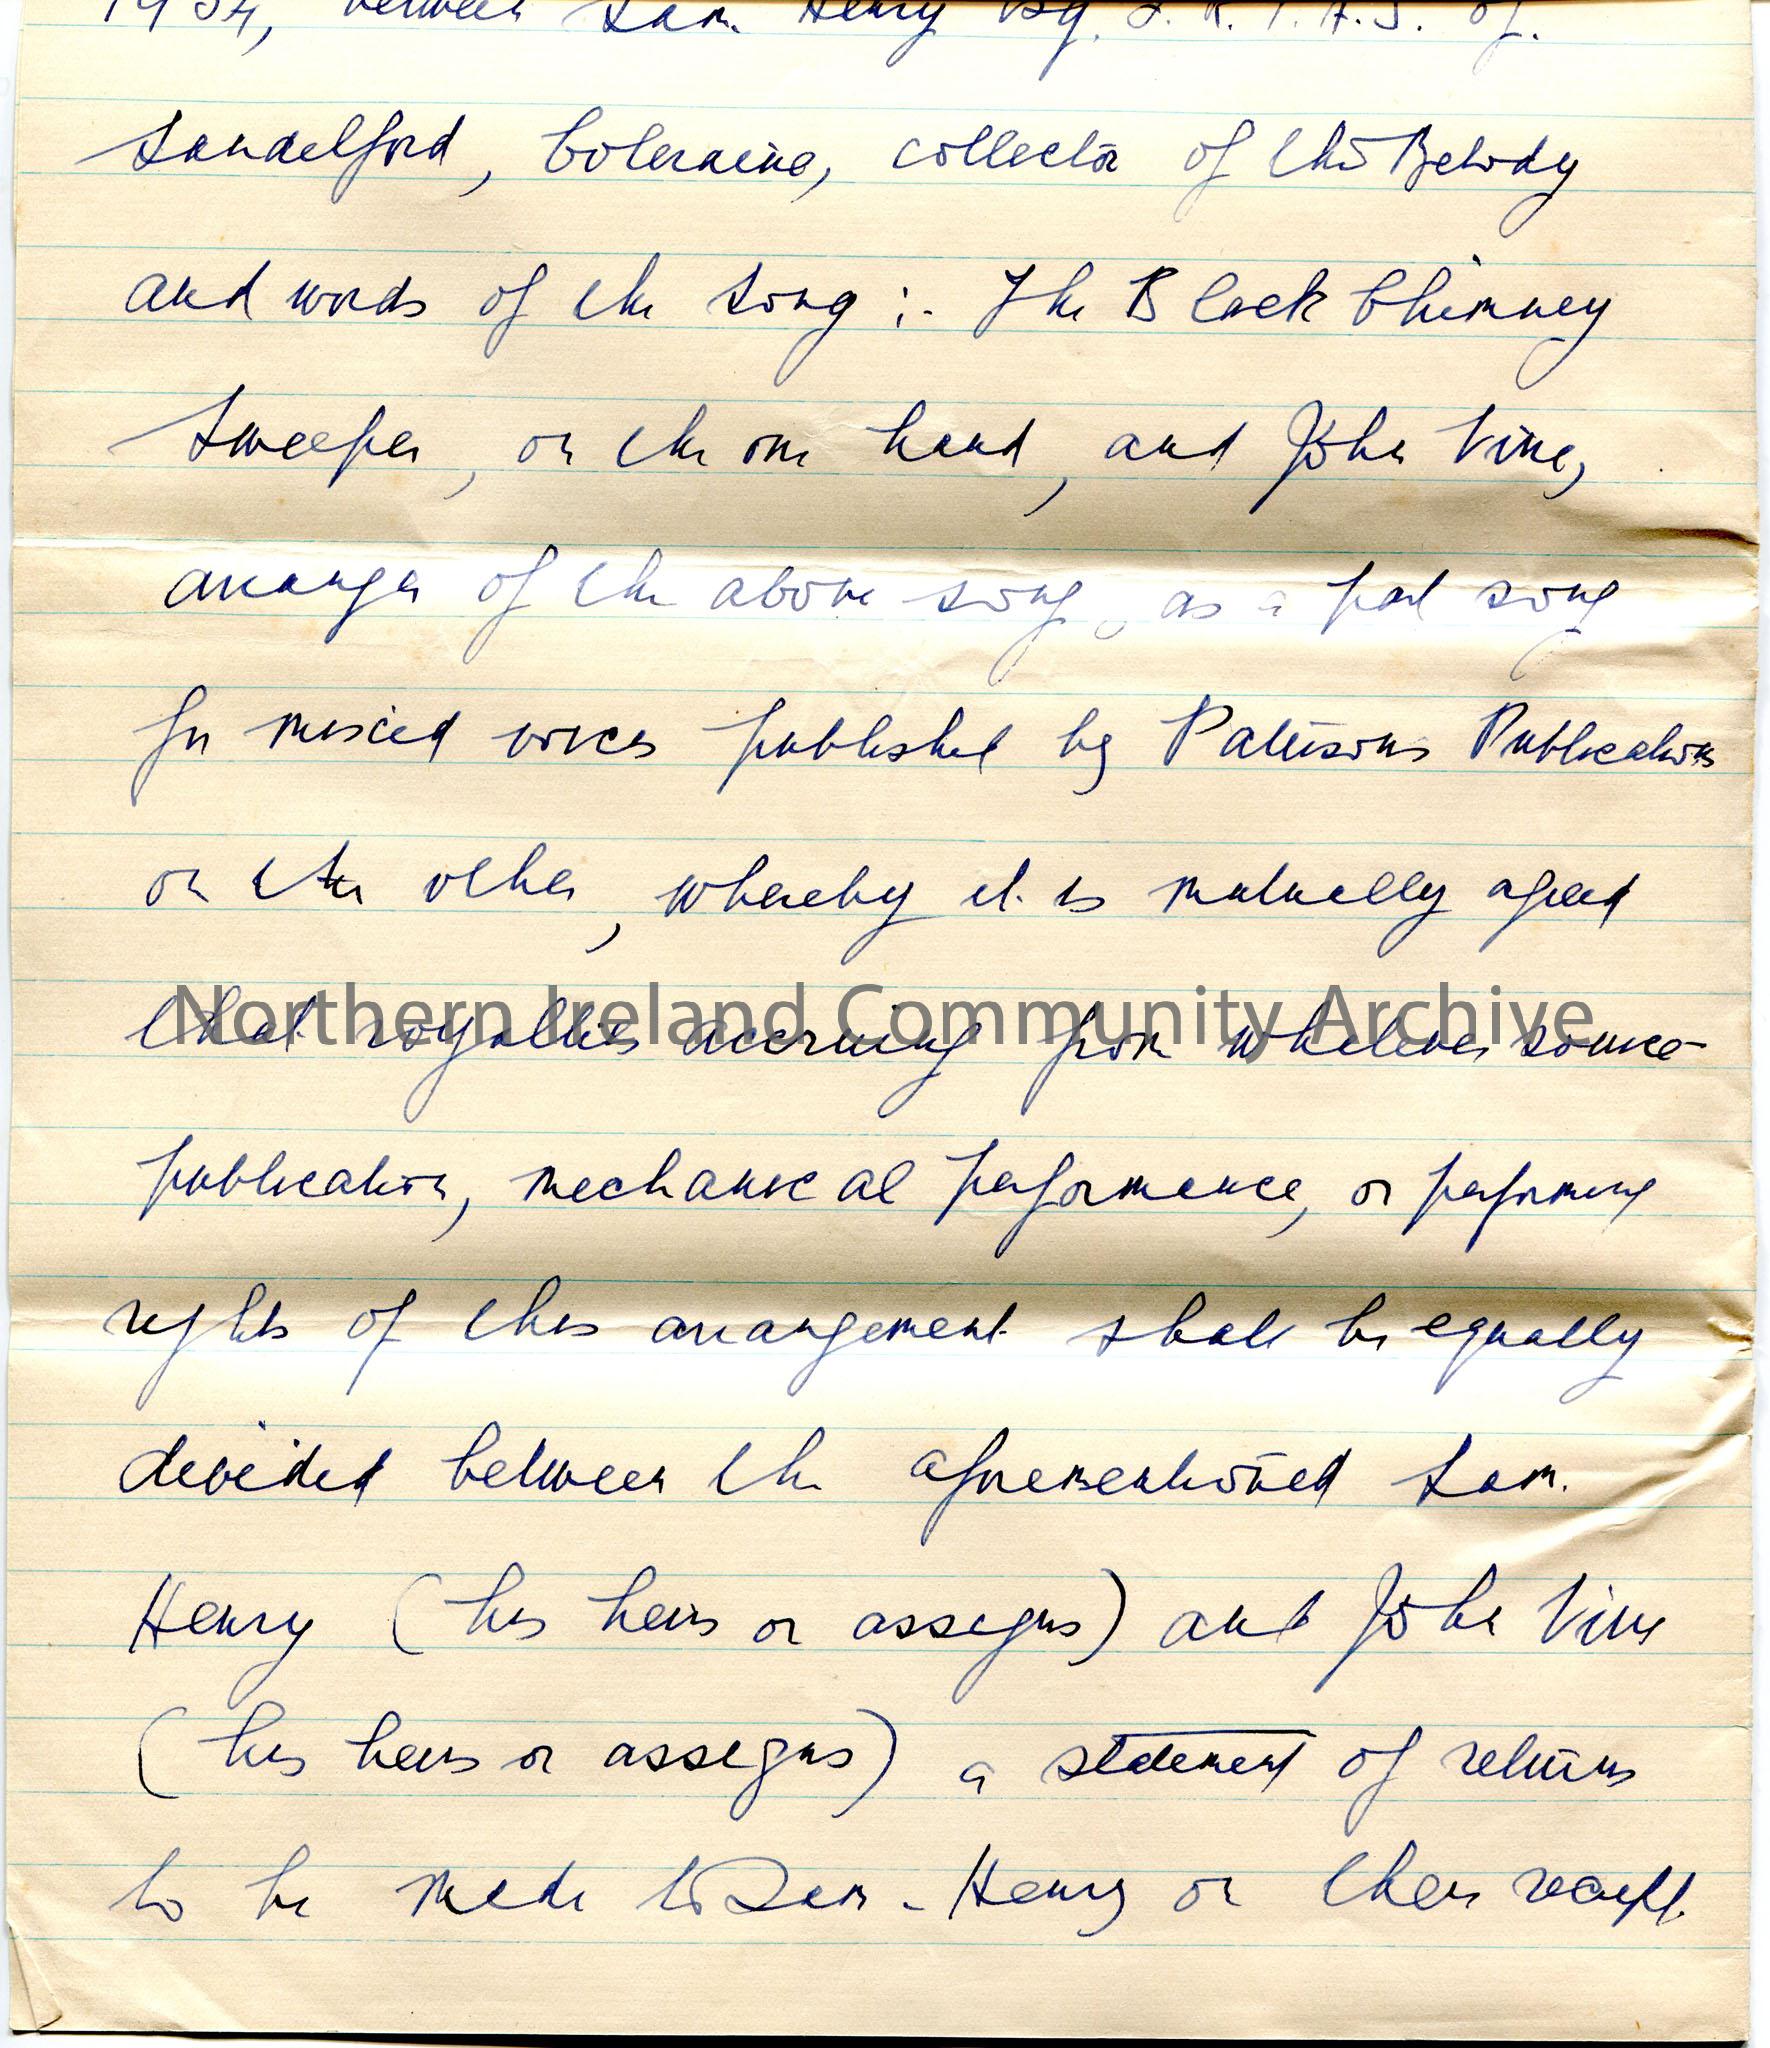 between Sam. Henry Esq. of.
Sandelford, Coleraine, collector of the Melody
and words of the song :- The Black Chimney
Sweeper, on the one hand, and John Vine,
arranger of the above song, as a part song
for mixed voices published by Patersons Publications
on the other, whereby it is mutually agreed
Northern Ireland Community Archive
that royalties accruing from whatever source
publication, mechanical performance, or performing
rights of this arrangement shall be equally
devided between the aforementioned Sam.
Henry (his heirs or assigns) and John Vine
(his heirs or assigns) a statement of returns
to be made to Sam. Henry on their receipt.